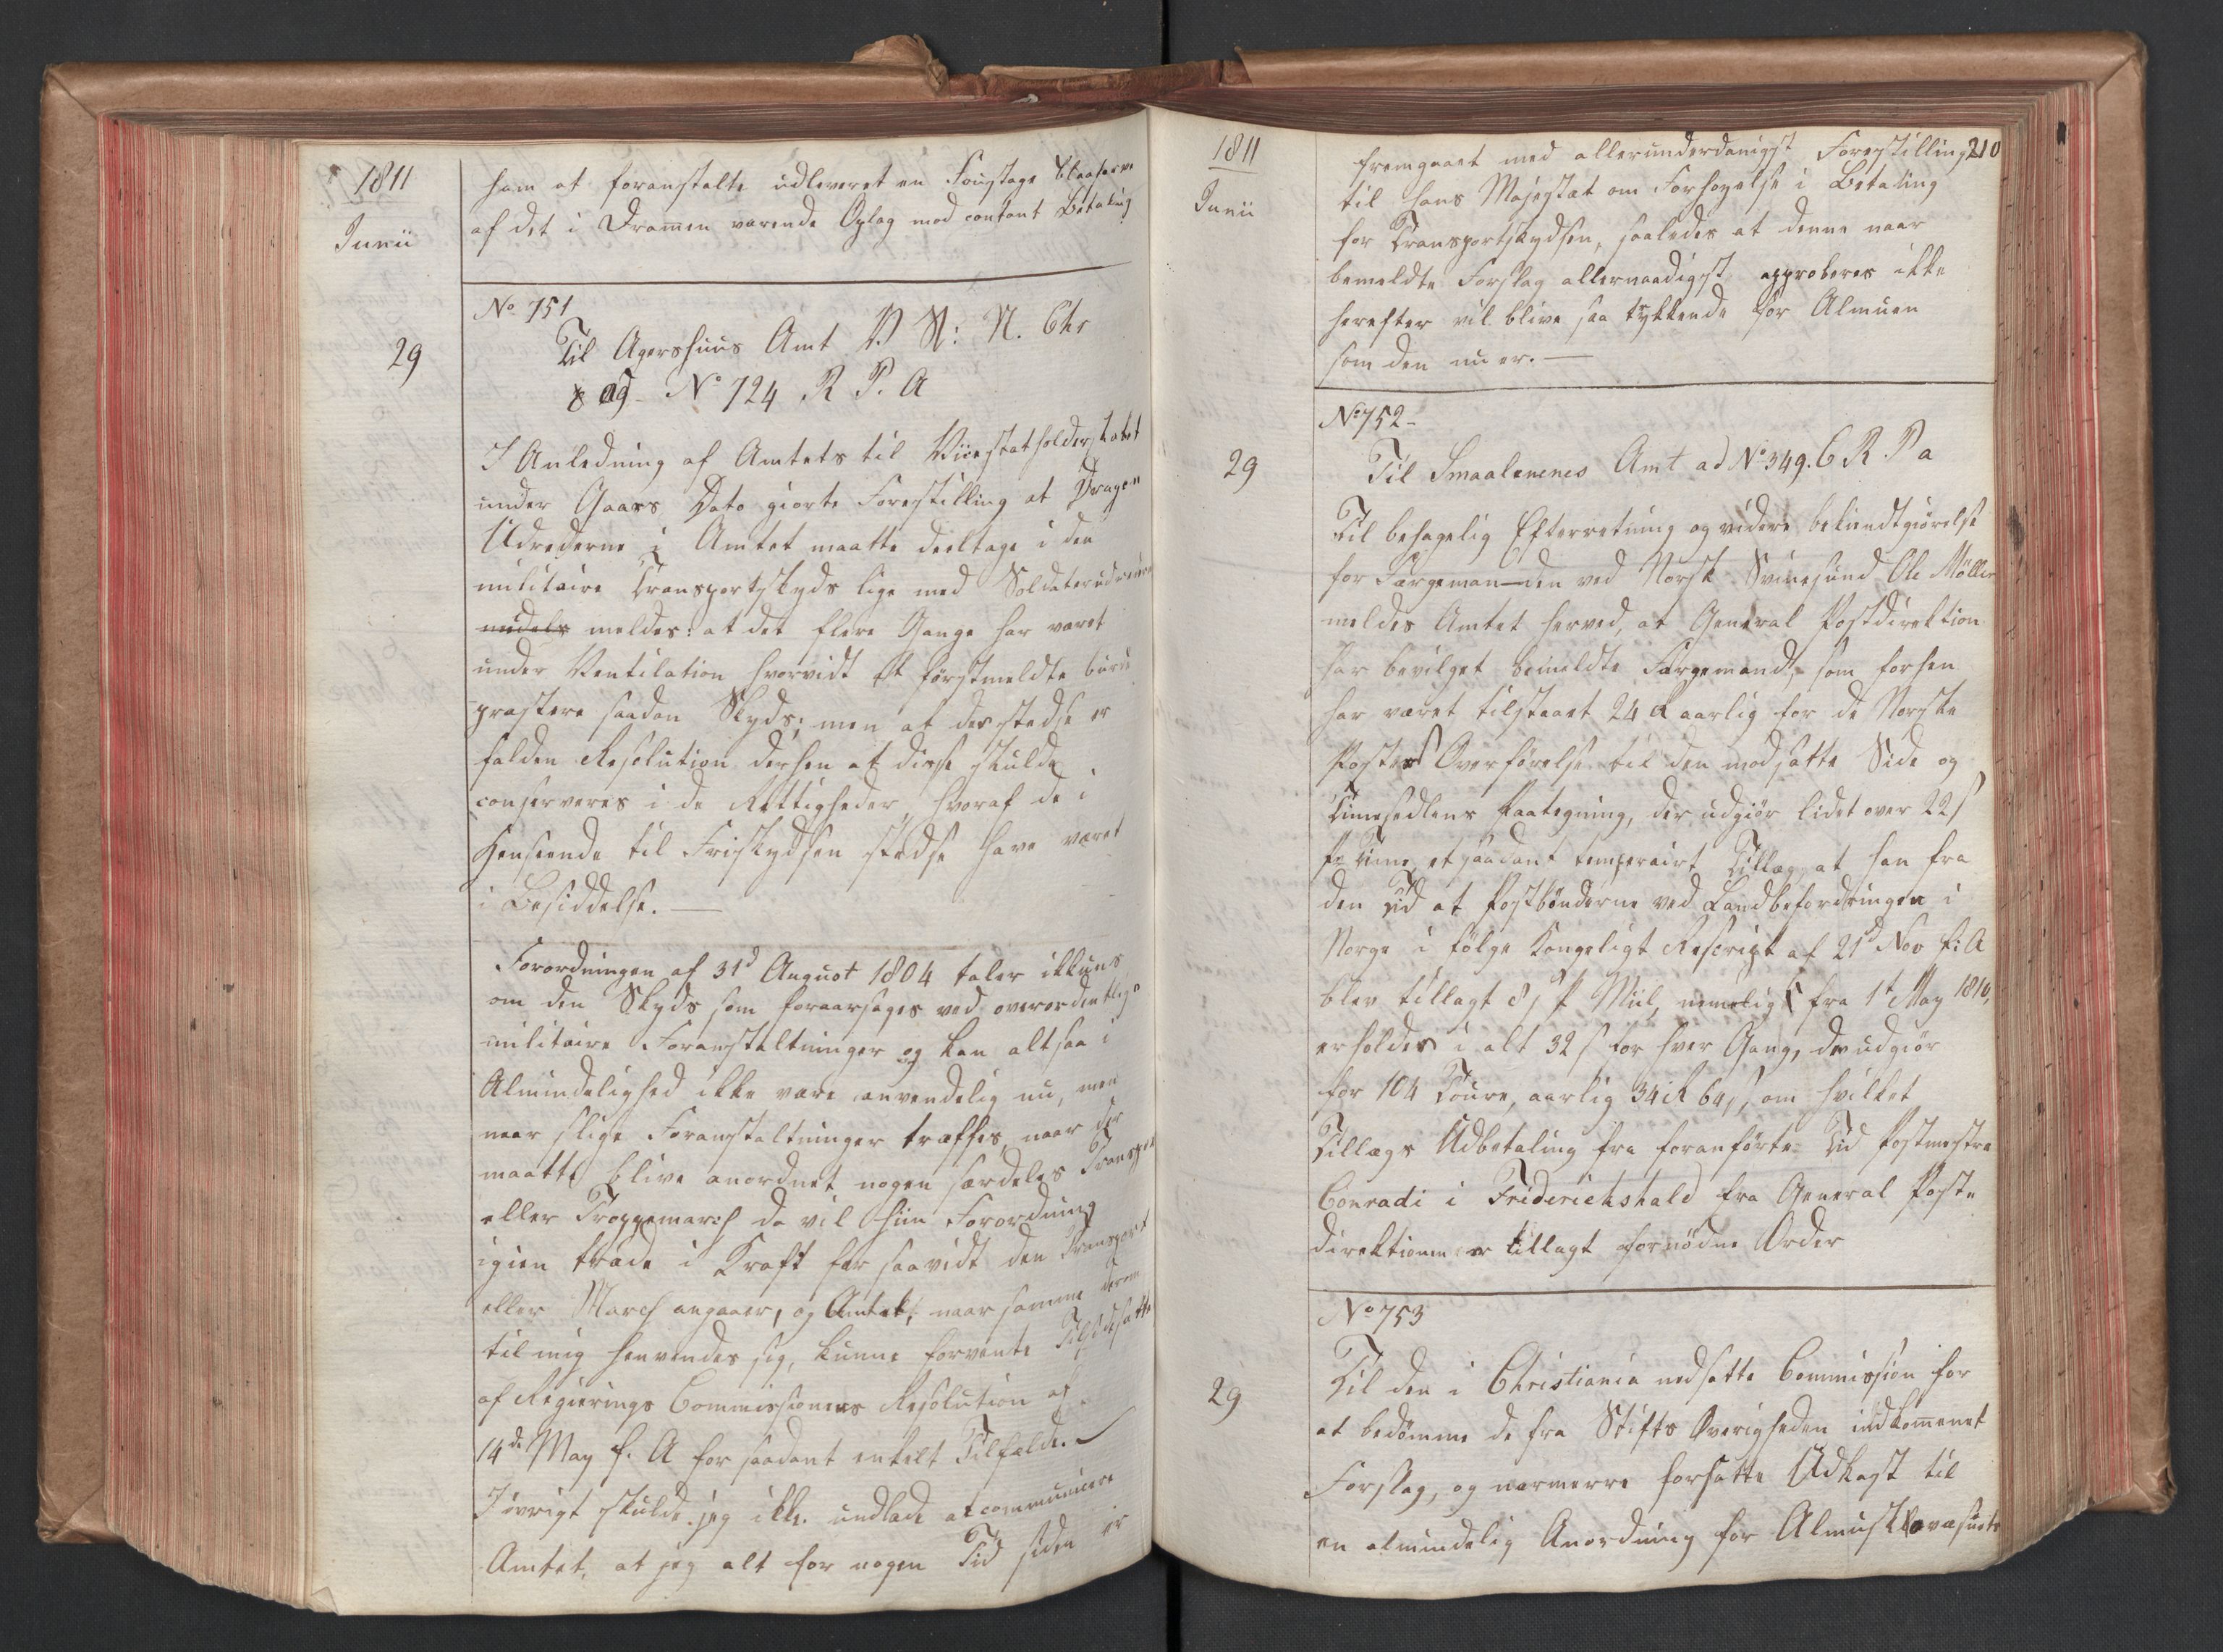 1811
Junii
ham at foranstalte udleveret en Foustage Blaafarve
af det i Dramen værende Oplag med contant Betaling
No 751
29
Til Agershuus Amt V. St: N. Chr
og No 724 R P. A
I Anledning af Amtets til Vicestatholderskabet
under Gaars Dato giorte Forestilling at Dragon
Udrederne i Amtet maatte deeltage i den
militaire Transportskyds lige med Soldaterudrederne
meldes: at det flere Gange har været
under Ventilation hvorvidt et førstmeldte burde
præstere saadan Skyds; men at der stedse er
falden Resolution derhen at disse skulde
conserveres i de Rettigheder, hvoraf de i
Henseende til Friskydsen stedse have været
i Besiddelse. —
Forordningen af 31d August 1804 taler ikkuns
om den Skyds som foraarsages ved overordentlige
militaire Foranstaltninger og kan altsaa i
Almindelighed ikke være anvendelig nu, men
naar slige Foranstaltninger træffes, naar der
maatte blive anordnet nogen særdeles Transport
eller Troppemarch da vil hiin Forordning
igien træde i Kraft for saavidt den Transport
eller March angaaer, og Amtet, naar samme derom
til mig henvender sig, kunne forvente Tilsidesatte
af Regierings Commissionens Resolution af
14de May f. A for saadant enkelt Tilfælde.
I øvrigt skulde jeg ikke undlade at communicere
Amtet, at jeg alt for nogen Tid siden er
1811
Junii
210
fremgaaet med allerunderdanigst Forestilling
til Hans Majestæt om Forhøyelse i Betaling
for Transportskydsen, saaledes at denne naar
bemeldte Forslag allernaadigst approberes ikke
herefter vil blive saa trykkende for Almuen
som den nu er. —
No 752
29
Til Smaalenenes Amt ad No 349. C R. P a
Til behagelig Efterretning og videre bekiendtgiørelse
for Færgeman-den ved Norsk Svinesund Ole Møller
meldes Amtet herved, at General Postdirektion
har bevilget bemeldte Færgemand, som forhen
har været tilstaaet 24 R aarlig for de Norske
Posters Overførelse til den modsatte Side og
Timesedlens Paategning, der udgiør lidet over 22 s
pr Time, et saadant temperairt Tillæg, at han fra
den Tid at Postbønderne ved Landbefordringen i
Norge i følge Kongeligt Rescript af 21d Nov f: A
blev tillagt 8 s pr Miil, nemelig fra 1t May 1810,
erholder i alt 32 s for hver Gang, der udgiør
for 104 Toure, aarlig 34 R 64 s, om hvilket
Tillægs Udbetaling fra foranførte Tid Postmestre
Conradi i Friderichshald fra General Post-
direktionen er tillagt fornødne Ordre
No 753
29
Til den i Christiania nedsatte Commission for
at bedømme de fra Stifts Øverigheden indkomenet
Forslag, og nærmere forfatte Udkast til
en almindelig Anordning for Almuskolevæsnets